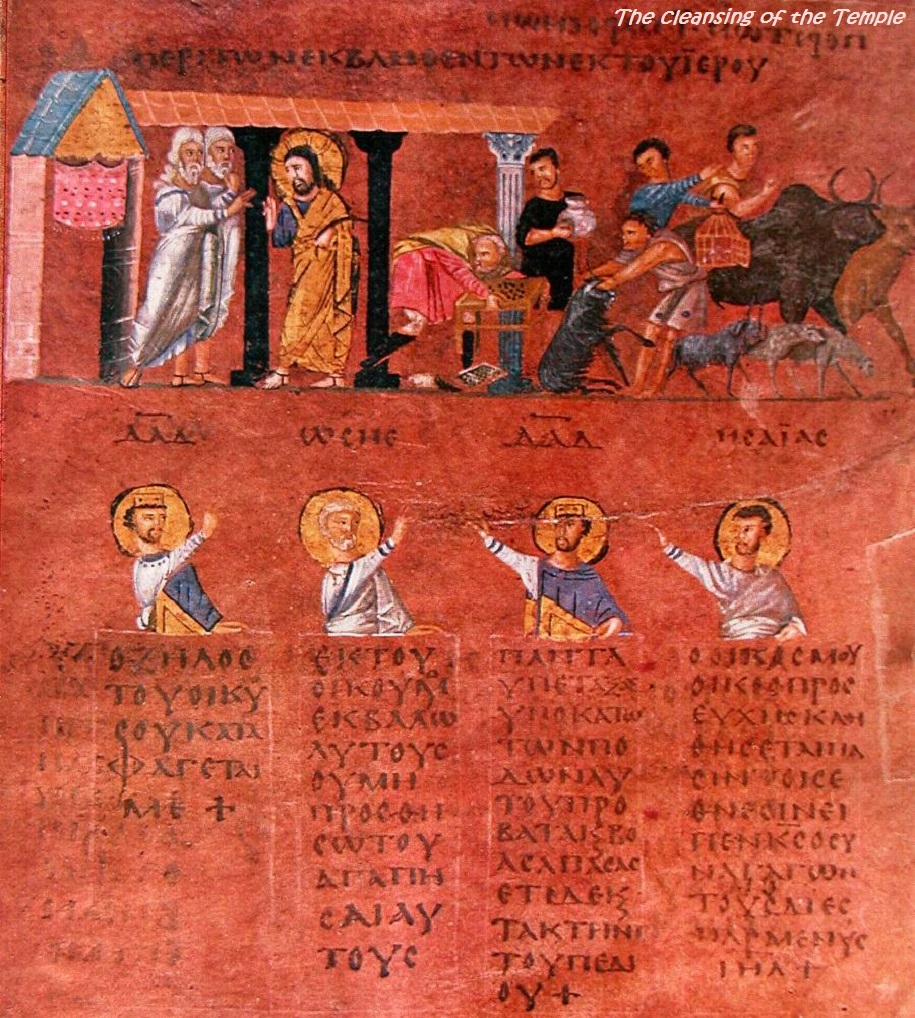 The Cleansing of the Temple
ΠΕΡΙ ΤΩΝ ΕΚΒΛΗΘΕΝΤΩΝ ΕΚ ΤΟΥ ΪΕΡΟΥ
ΔΑΔ
ΩϹΗΕ
ΔΑΔ
ΗϹΑΪΑϹ
Ο ΖΗΛΟϹ
ΤΟΥ ΟΙΚΟΥ
ϹΟΥ ΚΑΤΑ
ΦΑΓΕΤΑΙ
ΜΕ +
ΕΚ ΤΟΥ
ΟΙΚΟΥ ΜΟΥ
ΕΚΒΑΛΩ
ΑΥΤΟΥϹ
ΟΥ ΜΗ
ΠΡΟϹΘΗ
ϹΩ ΤΟΥ
ΑΓΑΠΗ
ϹΑΙ ΑΥ
ΤΟΥϹ
ΠΑΝΤΑ
ΥΠΕΤΑΞΑϹ
ΥΠΟΚΑΤΩ
ΤΩΝ ΠΟ
ΔΩΝ ΑΥ
ΤΟΥ ΠΡΟ
ΒΑΤΑ Ϗ ΒΟ
ΑϹ ΑΠΑϹΑϹ
ΕΤΙ ΔΕ Ϗ
ΤΑ ΚΤΗΝΗ
ΤΟΥ ΠΕΔΙ
ΟΥ +
Ο ΟΙΚΟϹ ΜΟΥ
ΟΙΚΟϹ ΠΡΟϹ
ΕΥΧΗϹ ΚΛΗ
ΘΗϹΕΤΑΙ ΠΑ
ϹΙΝ ΤΟΙϹ Ε
ΘΝΕϹΙΝ ΕΙ
ΠΕΝ ΚϹ Ο ϹΥ
ΝΑΓΑΓΩΝ
ΤΟΥϹ ΔΙΕϹ
ΠΑΡΜΕΝΟΥϹ
ΙΗΛ +